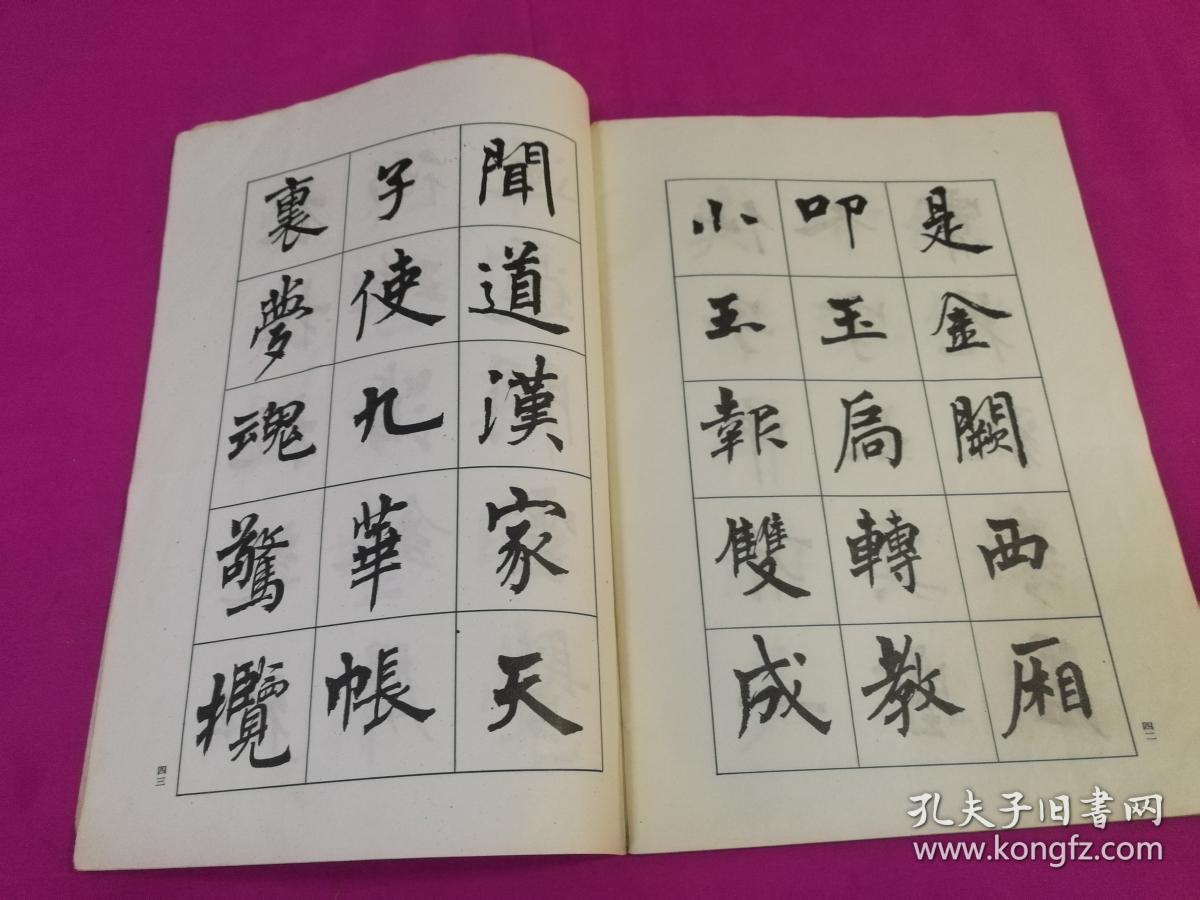 是金闕西厢
叩玉扃轉教
小玉報雙成
四二
聞道漢家天
子使九華帳
裏夢魂驚攬
四三
孔夫子旧書网
www.kongfz.com